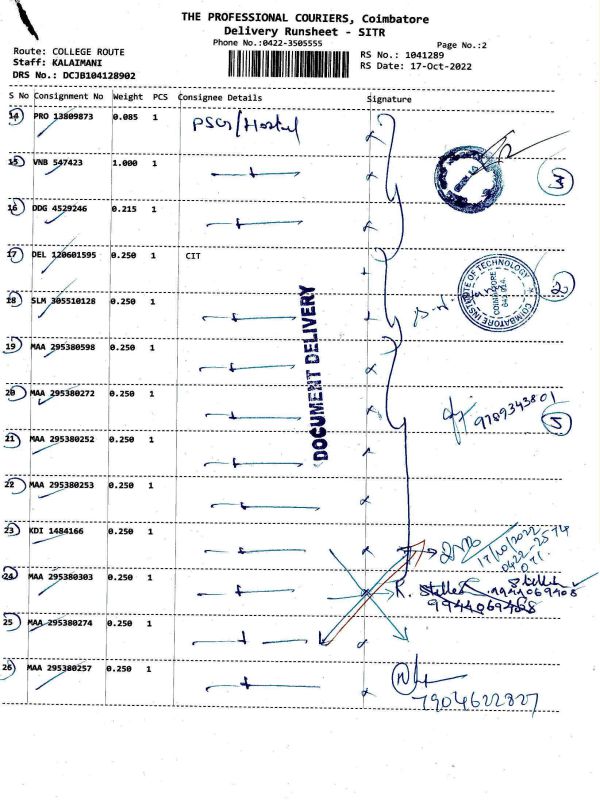 THE PROFESSIONAL COURIERS, Coimbatore
Delivery Runsheet - SITR
Phone No.:0422-3505555
Page No.:2
Route: COLLEGE ROUTE
Staff: KALAIMANI
DRS No.: DCJB104128902
RS No.: 1041289
RS Date: 17-Oct-2022
S No Consignment No Weight PCS Consignee Details Signature
14 PRO 13809873 0.085 1 PSG/Hostel
15 VNB 547423 1.000 1
3
16 DDG 4529246 0.215 1
17 DEL 120601595 0.250 1 CIT
COIMBATORE INSTITUTE OF TECHNOLOGY
COIMBATORE
641 014
18 SLM 305510128 0.250 1
DOCUMENT DELIVERY
19 MAA 295380598 0.250 1
20 MAA 295380272 0.250 1
9789343801
5
21 MAA 295380252 0.250 1
22 MAA 295380253 0.250 1
23 KDI 1484166 0.250 1
17/10/2022
0422-2574
24 MAA 295380303 0.250 1
R.
9944069408
9944069408
25 MAA 295380274 0.250 1
26 MAA 295380257 0.250 1
7904622827